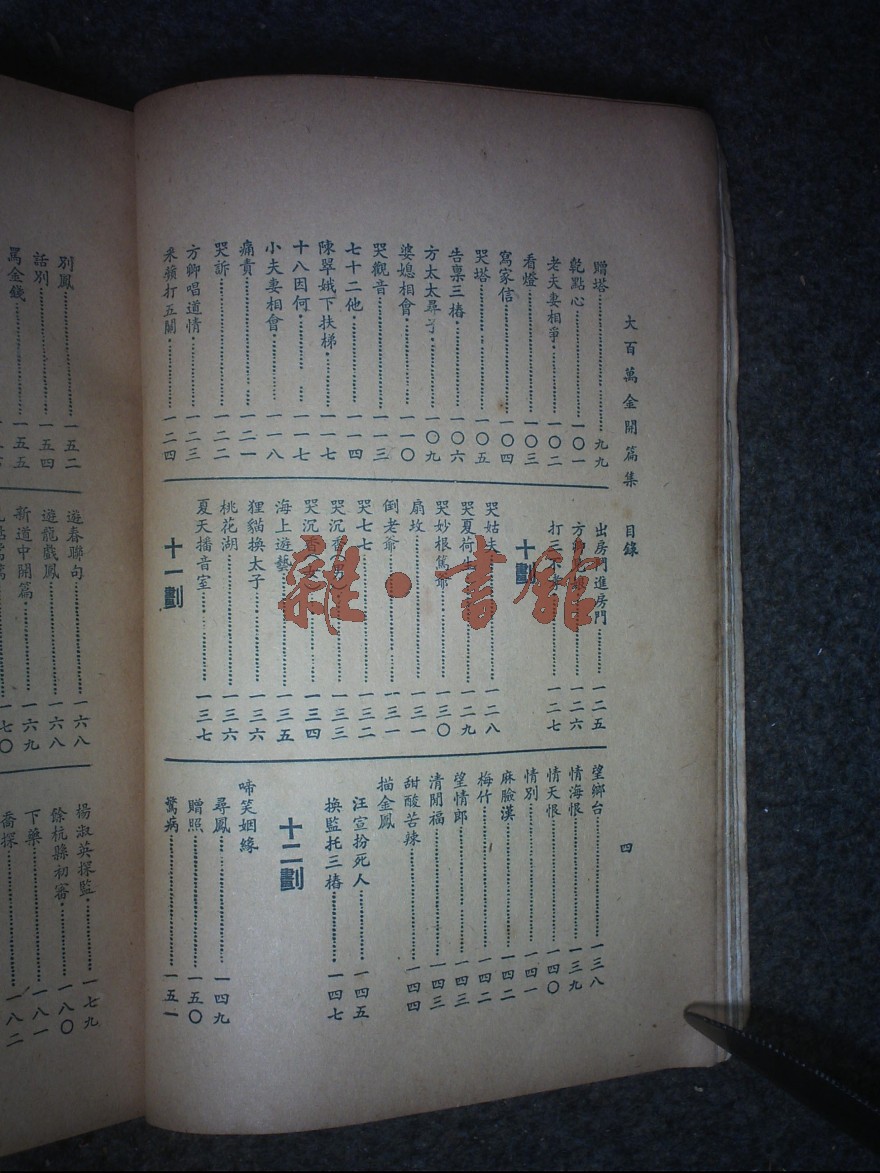 大百萬金開篇集 目錄 四
贈塔 九九
乾點心 一〇一
老夫妻相爭 一〇二
看燈 一〇三
寫家信 一〇四
哭塔 一〇五
告稟三樁 一〇六
方太太尋子 一〇九
婆媳相會 一一〇
哭觀音 一一三
七十二他 一一四
陳翠娥下扶梯 一一七
十八因何 一一七
小夫妻相會 一一八
痛責 一二一
哭訴 一二二
方卿唱道情 一二三
釆蘋打五關 一二四
出房門進房門 一二五
方 一二六
打三不孝 一二七
十劃
哭姑夫 一二八
哭夏荷生 一二九
哭妙根篤爺 一三〇
扇坟 一三一
倒老爺 一三一
哭七七 一三二
哭沉香(男) 一三三
哭沉香(女) 一三四
海上遊藝 一三五
狸貓換太子 一三六
桃花湖 一三六
夏天播音室 一三七
十一劃
望鄉台 一三八
情海恨 一三九
情天恨 一四〇
情別 一四一
麻臉漢 一四二
梅竹 一四二
望情郎 一四三
清閒福 一四三
甜酸苦辣 一四四
描金鳳
汪宣扮死人 一四五
換監托三樁 一四七
十二劃
啼笑姻緣
尋鳳 一四九
贈照 一五〇
驚病 一五一
別鳳 一五二
話別 一五四
罵金錢 一五五
遊春聯句 一六八
遊龍戲鳳 一六八
新道中開篇 一六九
一七〇
楊淑英探監 一七九
餘杭縣初審 一八〇
下藥 一八一
喬探 一八二
雜·書館